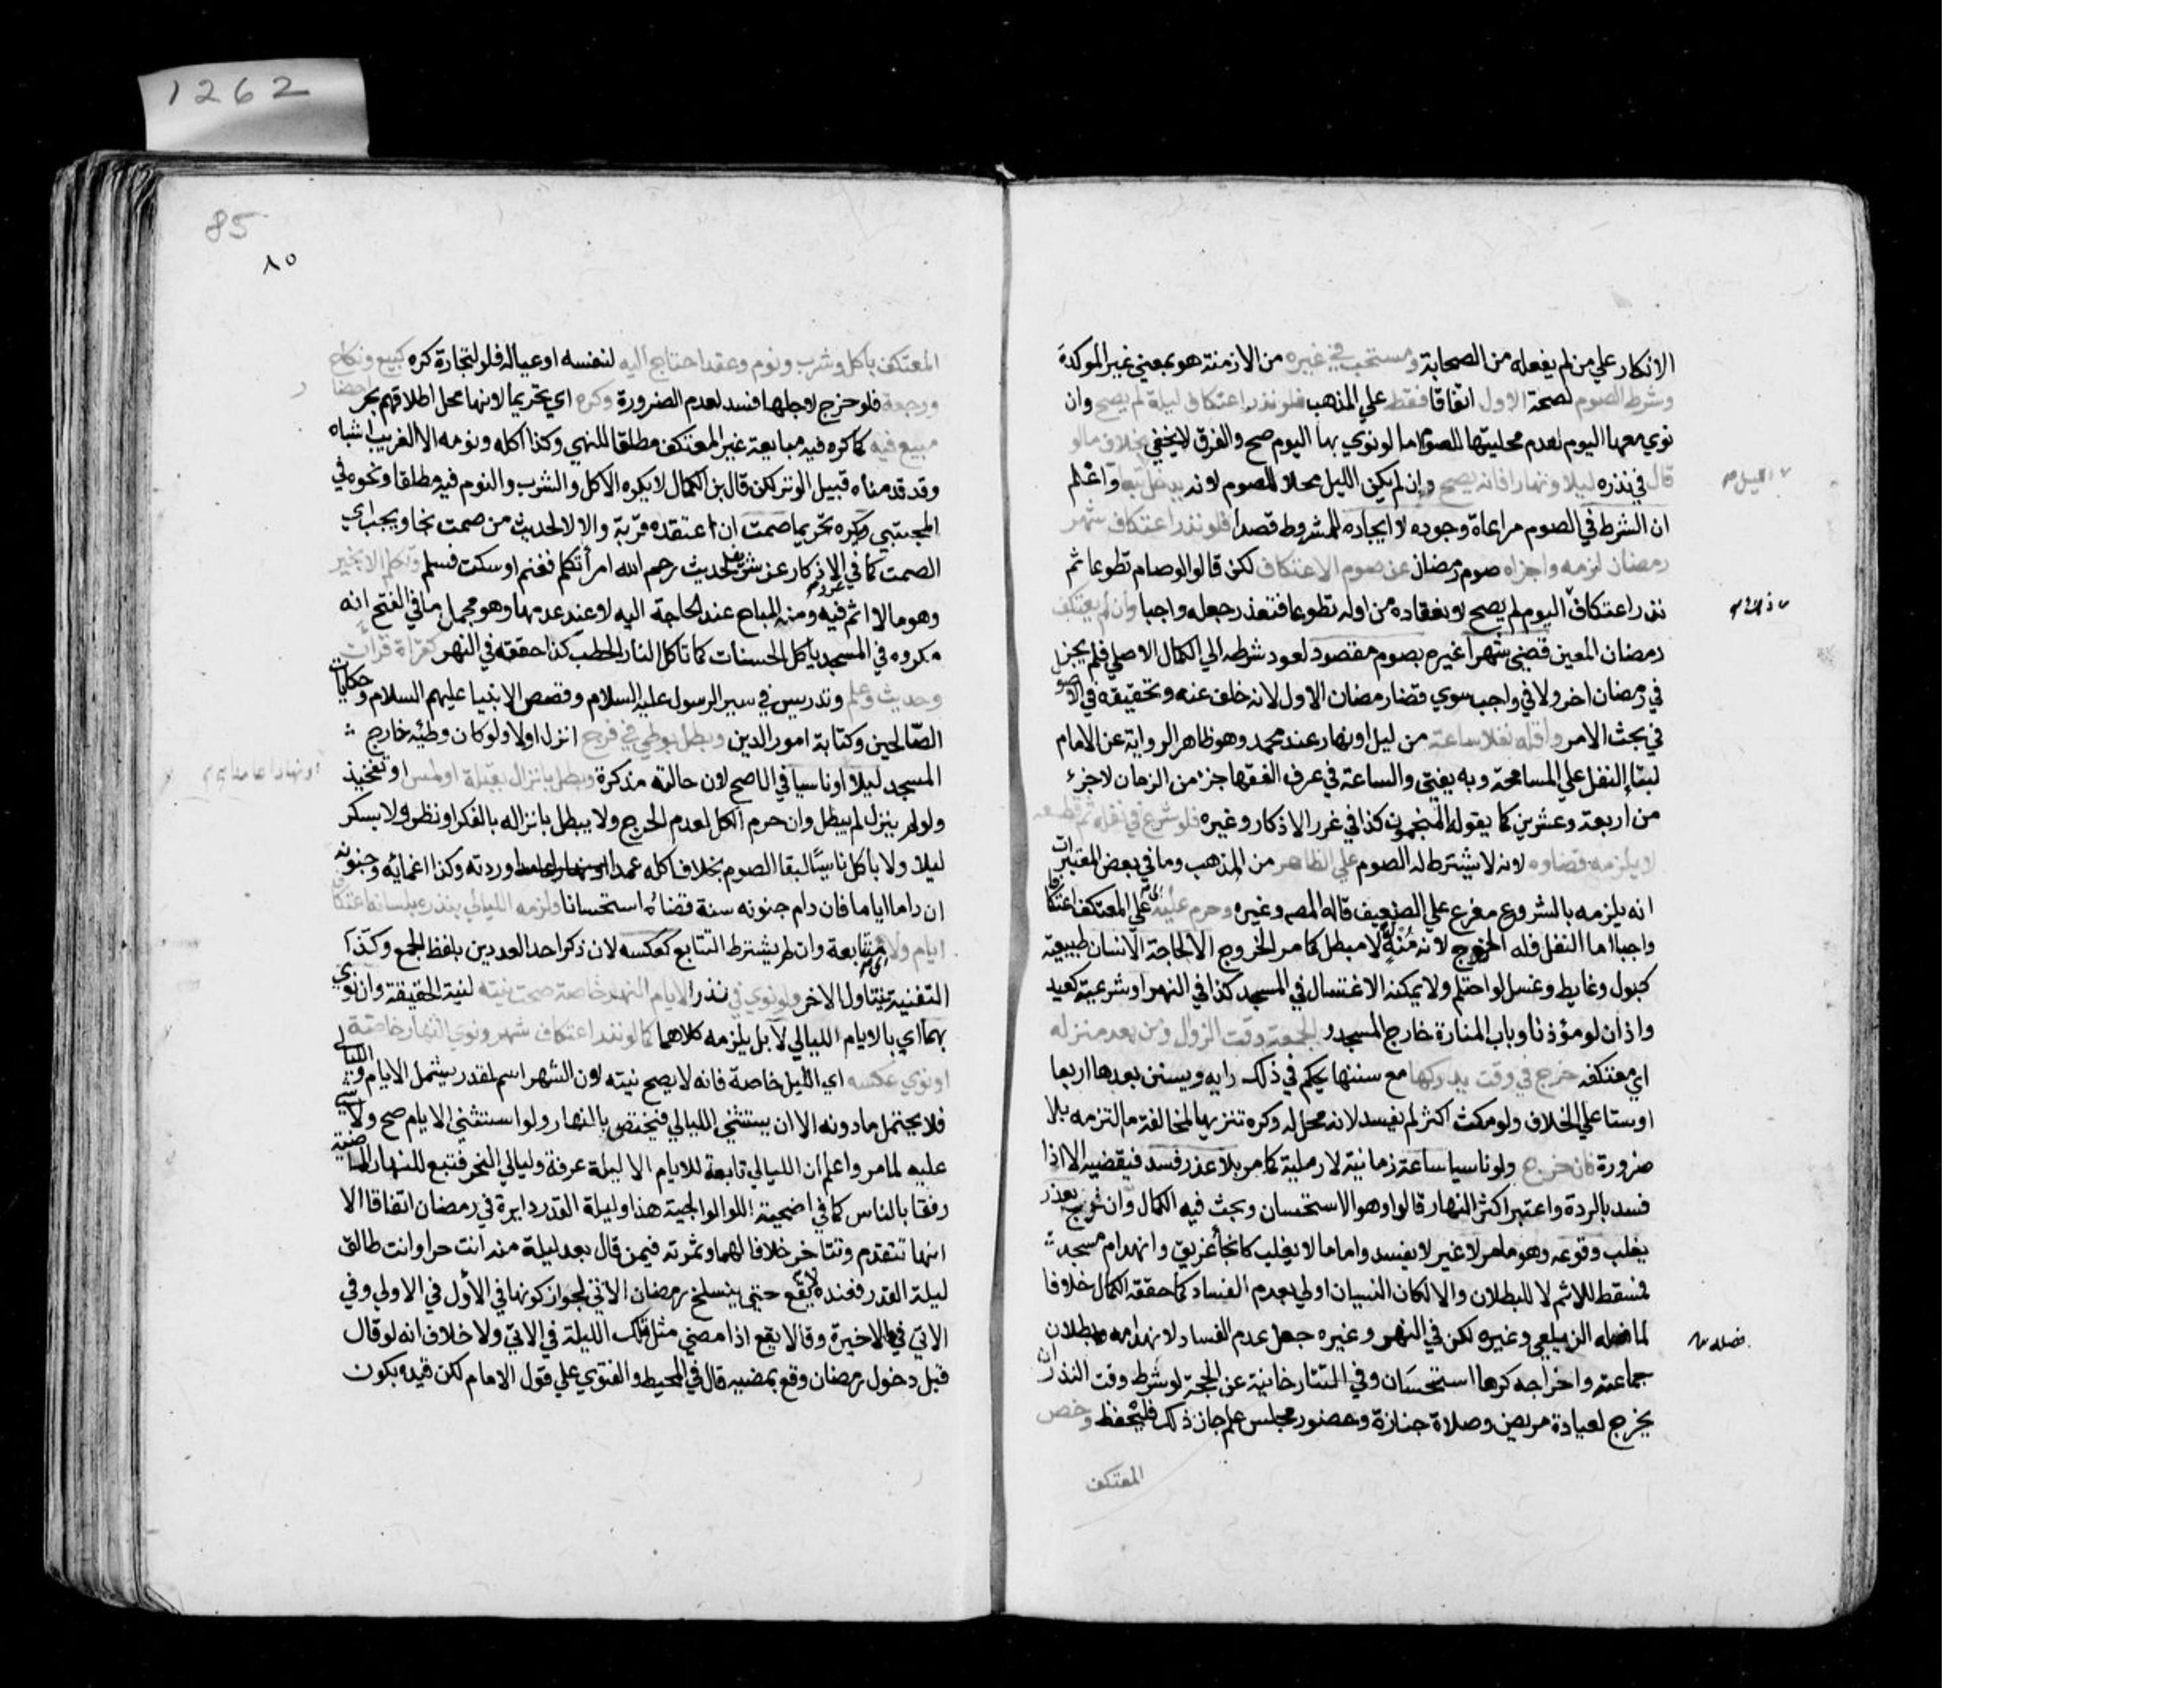 الانكار علي من لم يفعله من الصحابة ومستحب في غيره من الازمنة هو بمعني غير الموكدة
وشرط الصوم لصحة الاول اتفاقا فقط علي المذهب فلو نذر اعتكاف ليلة لم يصح وان
نوي معها اليوم لعدم محليتها للصوم اما لو نوي بها اليوم صح والفرق لا يخفي بخلاف مالو
قال في نذره ليلا ونهارا فانه يصح وان لم يكن الليل محلا للصوم لانه يدخل تبعا واعلم
ان الشرط في الصوم مراعاة وجوده لا ايجاده للمشروط قصدا فلو نذر اعتكاف شهر
رمضان لزمه واجزاه صوم رمضان عن صوم الاعتكاف لكن قالوا لو صام تطوعا ثم
نذر اعتكاف اليوم لم يصح لانعقاده من اوله تطوعا فتعذر جعله واجبا وان لم يعتكف
رمضان المعين قضي شهرا غيره بصوم مقصود لعود شرطه الي الكمال الاصلي فلم يجز
في رمضان اخر ولا في واجب سوي قضا رمضان الاول لانه خلف عنه وتحقيقه في الاصول
في بحث الامر واقله نفلا ساعة من ليل او نهار عند محمد وهو ظاهر الرواية عن الامام
لبنا النفل علي المسامحة وبه يفتي والساعة في عرف الفقها جزء من الزمان لا جزء
من اربعة وعشرين كما يقوله المنجمون كذا في غرر الاذكار وغيره فلو شرع في نفله ثم قطعه
لا يلزمه قضاوه لانه لا يشترط له الصوم علي الظاهر من المذهب وما في بعض المعتبرات
انه يلزمه بالشروع مفرع علي الضعيف قاله المص وغيره وحرم عليه اي علي المعتكف اعتكافا
واجبا اما النفل فله الخروج لانه منه له لا مبطل كما مر الخروج الا لحاجة الانسان طبيعية
كبول وغايط وغسل لو احتلم ولا يمكنه الاغتسال في المسجد كذا في النهر او شرعية كعيد
واذان لو مؤذنا وباب المنارة خارج المسجد و الجمعة وقت الزوال ومن بعد منزله
اي معتكفه خرج في وقت يدركها مع سنتها يحكم في ذلك رايه ويستن بعدها اربعا
او ستا علي الخلاف ولو مكث اكثر لم يفسد لانه محل له وكره تنزيها لمخالفة ما التزمه بلا
ضرورة فان خرج ولو ناسيا ساعة زمانية لا رملية كما مر بلا عذر فسد فيقضيه الا اذا
فسد بالردة واعتبر اكثر النهار قالوا وهو الاستحسان وبحث فيه الكمال وان خرج بعذر
يغلب وقوعه وهو ما مر لا غير لا يفسد واما ما لا يغلب كانجا غريق وانهدام مسجد
فمسقط للاثم لا للبطلان والا لكان النسيان اولي بعدم الفساد كما حققه الكمال خلافا
لما فصله الزيلعي وغيره لكن في النهر وغيره جعل عدم الفساد لانهدامه وبطلان
جماعته واخراجه كرها استحسان وفي التتارخانية عن الحجة لو شرط وقت النذر ان
يخرج لعيادة مريض وصلاة جنازة وحضور مجلس علم جاز ذلك فليحفظ وخص
المعتكف
فصله
85
٨٥
المعتكف باكل وشرب ونوم وعقد احتاج اليه لنفسه او عياله فلو لتجارة كره كبيع ونكاح
ورجعة فلو خرج لاجلها فسد لعدم الضرورة وكره اي تحريما لانها محل اطلاقهم بحر احضار
مبيع فيه كما كره فيه مبايعة غير المعتكف مطلقا للنهي وكذا اكله ونومه الا الغريب اشباه
وقد قدمناه قبيل الوتر لكن قال ابن الكمال لا يكره الاكل والشرب والنوم فيه مطلقا ونحوه في
المجتبي وكره تحريما صمت ان اعتقده قربة والا لا لحديث من صمت نجا ويجب اي
الصمت كما في الاذكار عن شر لحديث رحم الله امرأ تكلم فغنم او سكت فسلم وتكلم الا بخير
وهو ما لا اثم فيه ومنه المباح عند الحاجة اليه لا عند عدمها وهو مجمل ما في الفتح انه
مكروه في المسجد ياكل الحسنات كما تاكل النار الحطب كذا حققه في النهر كقراة قرآن
وحديث وعلم وتدريس في سير الرسول عليه السلام وقصص الانبيا عليهم السلام وحكايات
الصالحين وكتابة امور الدين وبطل بوطي في فرج انزل اولا ولو كان وطئه خارج
المسجد ليلا او ناسيا في الاصح لان حالته مذكرة وبطل بانزال بقبلة او لمس او تفخيذ
او نهارا عامدا
ولو لم ينزل لم يبطل وان حرم الكل لعدم الحرج ولا يبطل بانزاله بالفكر او نظر ولا بسكر
ليلا ولا باكل ناسيا لبقا الصوم بخلاف اكله عمدا وردته وكذا اغمائه وجنونه
ان داما اياما فان دام جنونه سنة قضاه استحسانا ولزمه الليالي بنذره بلسانه اعتكاف
ايام ولا متتابعة وان لم يشترط التتابع كعكسه لان ذكر احد العددين بلفظ الجمع وكذا
التثنية يتناول الاخر ولو نوي في نذر الايام النهر خاصة صحت نيته لنية الحقيقة وان نوي
بها اي بالايام الليالي لا بل يلزمه كلاهما كما لو نذر اعتكاف شهر ونوي النهار خاصة
او نوي عكسه اي الليل خاصة فانه لا يصح نيته لان الشهر اسم لمقدر يشمل الايام والليالي
فلا يحتمل ما دونه الا ان يستثني الليالي فيختص بالنهار ولو استثني الايام صح ولا شي
عليه لما مر واعلم ان الليالي تابعة للايام الا ليلة عرفة وليالي النحر فتبع للنهار الماضية
رفقا بالناس كما في اضحية الولوالجية هذا وليلة القدر دايرة في رمضان اتفاقا الا
انها تتقدم وتتاخر خلافا لهما وثمرته فيمن قال بعد ليلة منه انت حر او انت طالق
ليلة القدر فعنده لا يقع حتي ينسلخ رمضان الاتي لجواز كونها في الاول في الاولي وفي
الاتي في الاخيرة وقالا يقع اذا مضي مثل تلك الليلة في الاتي ولا خلاف انه لو قال
قبل دخول رمضان وقع بمضيه قال في المحيط والفتوي علي قول الامام لكن قيده بكون
1262